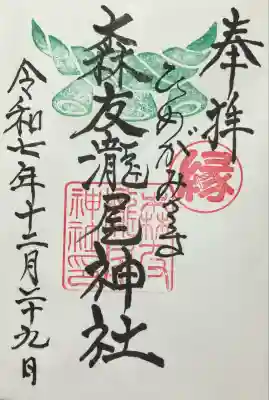 奉拝
縁
ひめがみさま
森友瀧尾神社
令和七年十二月二十九日